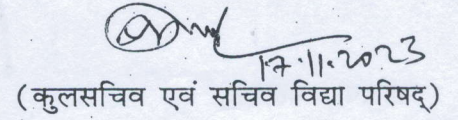 17.11.2023
(कुलसचिव एवं सचिव विद्या परिषद्)